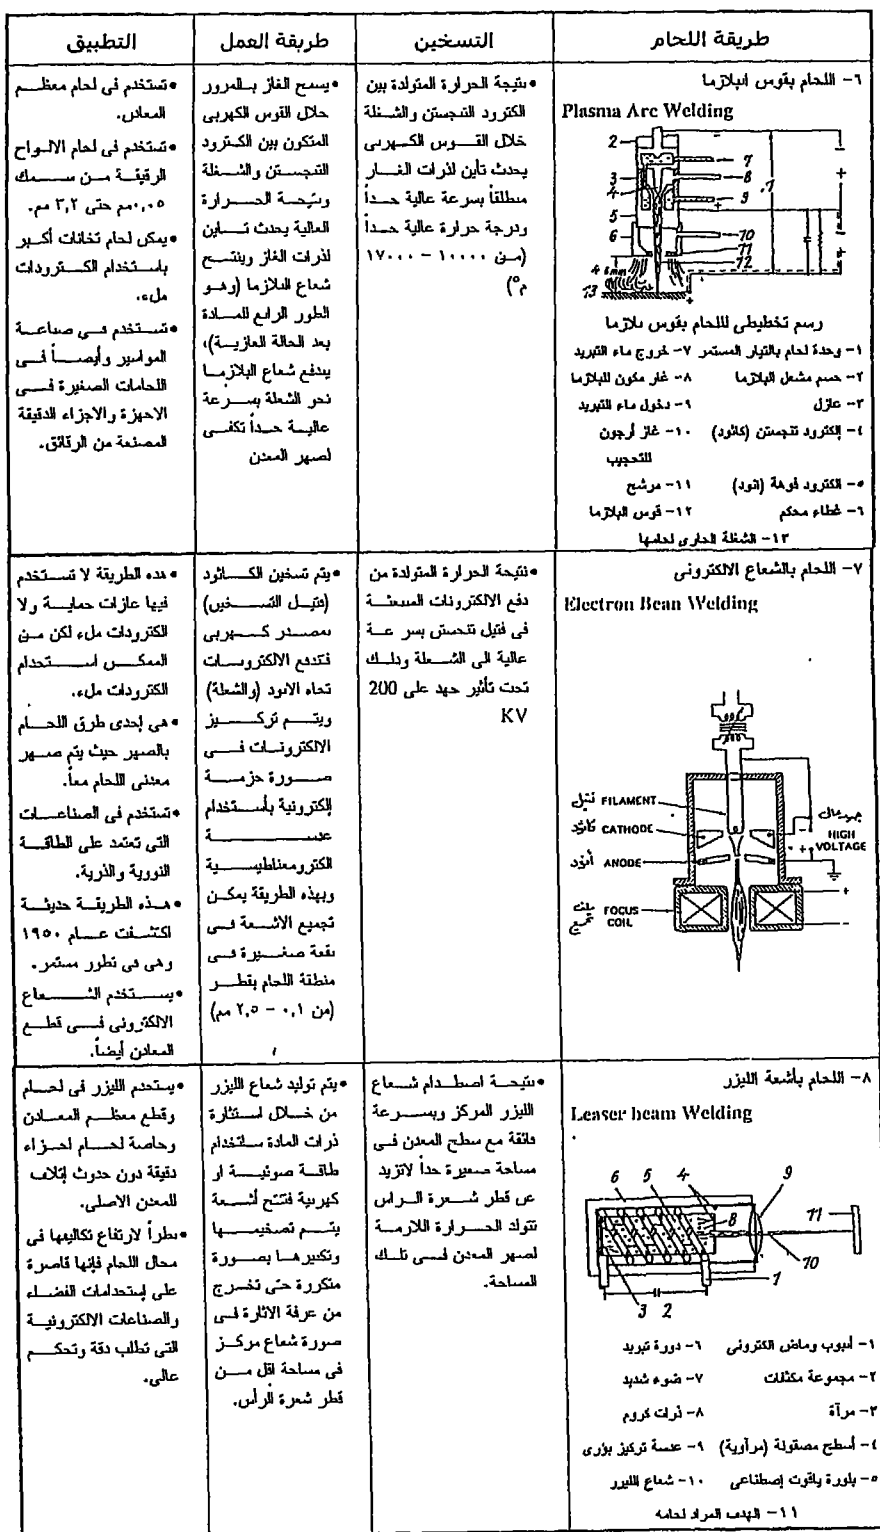 طريقة اللحام
التسخين
طريقة العمل
التطبيق
٦- اللحام بقوس البلازما
Plasma Arc Welding
2
3
4
5
6
7
8
9
10
11
12
13
رسم تخطيطى لللحام بقوس بلازما
١- وحدة لحام بالتيار المستمر ٧- خروج ماء التبريد
٢- جسم مشعل البلازما ٨- غاز مكون للبلازما
٣- عازل ٩- دخول ماء التبريد
٤- إلكترود تنجستن (كاثود) ١٠- غاز أرجون
للتحجيب
٥- الكترود فوهة (انود) ١١- مرشح
٦- غطاء محكم ١٢- قوس البلازما
١٣- الشغلة الجارى لحامها
• نتيجة الحرارة المتولدة بين
الكترود التنجستن والشغلة
خلال القوس الكهربى
يحدث تأين لذرات الغاز
منطلقاً بسرعة عالية جداً
ودرجة حرارة عالية جداً
(من ١٠٠٠٠ - ١٧٠٠٠
م°)
• يسمح الغاز بالمرور
خلال القوس الكهربى
المتكون بين الكترود
التنجستن والشغلة
ونتيجة الحرارة
العالية يحدث تأين
لذرات الغاز وينتج
شعاع البلازما (وهو
الطور الرابع للمادة
بعد الحالة الغازية)،
يندفع شعاع البلازما
نحو الشغلة بسرعة
عالية جداً تكفى
لصهر المعدن
• تستخدم فى لحام معظم
المعادن.
• تستخدم فى لحام الالواح
الرقيقة من سمك
٠,٠٥مم حتى ٣,٢ مم.
• يمكن لحام تخانات أكبر
باستخدام الكترودات
ملء.
• تستخدم فى صناعة
المواسير وأيضاً فى
اللحامات الصغيرة فى
الاجهزة والاجزاء الدقيقة
المصنعة من الرقائق.
٧- اللحام بالشعاع الالكترونى
Electron Bean Welding
فتيل FILAMENT
كاثود CATHODE
أنود ANODE
ملف تجميع FOCUS
COIL
جهد عالى
HIGH
VOLTAGE
• نتيجة الحرارة المتولدة من
دفع الالكترونات المنبعثة
فى فتيل تنجستن بسرعة
عالية الى الشغلة وذلك
تحت تأثير جهد على 200
KV
• يتم تسخين الكاثود
(فتيل التسخين)
بمصدر كهربى
فتندفع الالكترونات
تجاه الانود (والشغلة)
ويتم تركيز
الالكترونات فى
صورة حزمة
إلكترونية بأستخدام
عدسة
الكترومغناطيسية
وبهذه الطريقة يمكن
تجميع الاشعة فى
بقعة صغيرة فى
منطقة اللحام بقطر
(من ٠,١ - ٢,٥ مم)
• هذه الطريقة لا تستخدم
فيها غازات حماية ولا
الكترودات ملء لكن من
الممكن استخدام
الكترودات ملء.
• هى إحدى طرق اللحام
بالصهر حيث يتم صهر
معدنى اللحام معاً.
• تستخدم فى الصناعات
التى تعتمد على الطاقة
النووية والذرية.
• هذه الطريقة حديثة
اكتشفت عام ١٩٥٠
وهى فى تطور مستمر.
• يستخدم الشعاع
الالكترونى فى قطع
المعادن أيضاً.
٨- اللحام بأشعة الليزر
Leaser beam Welding
6
5
4
9
8
11
10
1
3
2
١- أنبوب وماض الكترونى ٦- دورة تبريد
٢- مجموعة مكثفات ٧- ضوء شديد
٣- مرآة ٨- ذرات كروم
٤- أسطح مصقولة (مرآوية) ٩- عدسة تركيز بؤرى
٥- بلورة ياقوت إصطناعى ١٠- شعاع الليزر
١١- الهدف المراد لحامه
• نتيجة اصطدام شعاع
الليزر المركز وبسرعة
فائقة مع سطح المعدن فى
مساحة صغيرة جداً لاتزيد
عن قطر شعرة الراس
تتولد الحرارة اللازمة
لصهر المعدن فى تلك
المساحة.
• يتم توليد شعاع الليزر
من خلال استثارة
ذرات المادة باستخدام
طاقة ضوئية او
كهربية فتنتج أشعة
يتم تضخيمها
وتكبيرها بصورة
متكررة حتى تخرج
من غرفة الاثارة فى
صورة شعاع مركز
فى مساحة اقل من
قطر شعرة الرأس.
• يستخدم الليزر فى لحام
وقطع معظم المعادن
وخاصة لحام اجزاء
دقيقة دون حدوث إتلاف
للمعدن الاصلى.
• نظراً لارتفاع تكاليفها فى
مجال اللحام فإنها قاصرة
على إستخدامات الفضاء
والصناعات الالكترونية
التى تطلب دقة وتحكم
عالى.